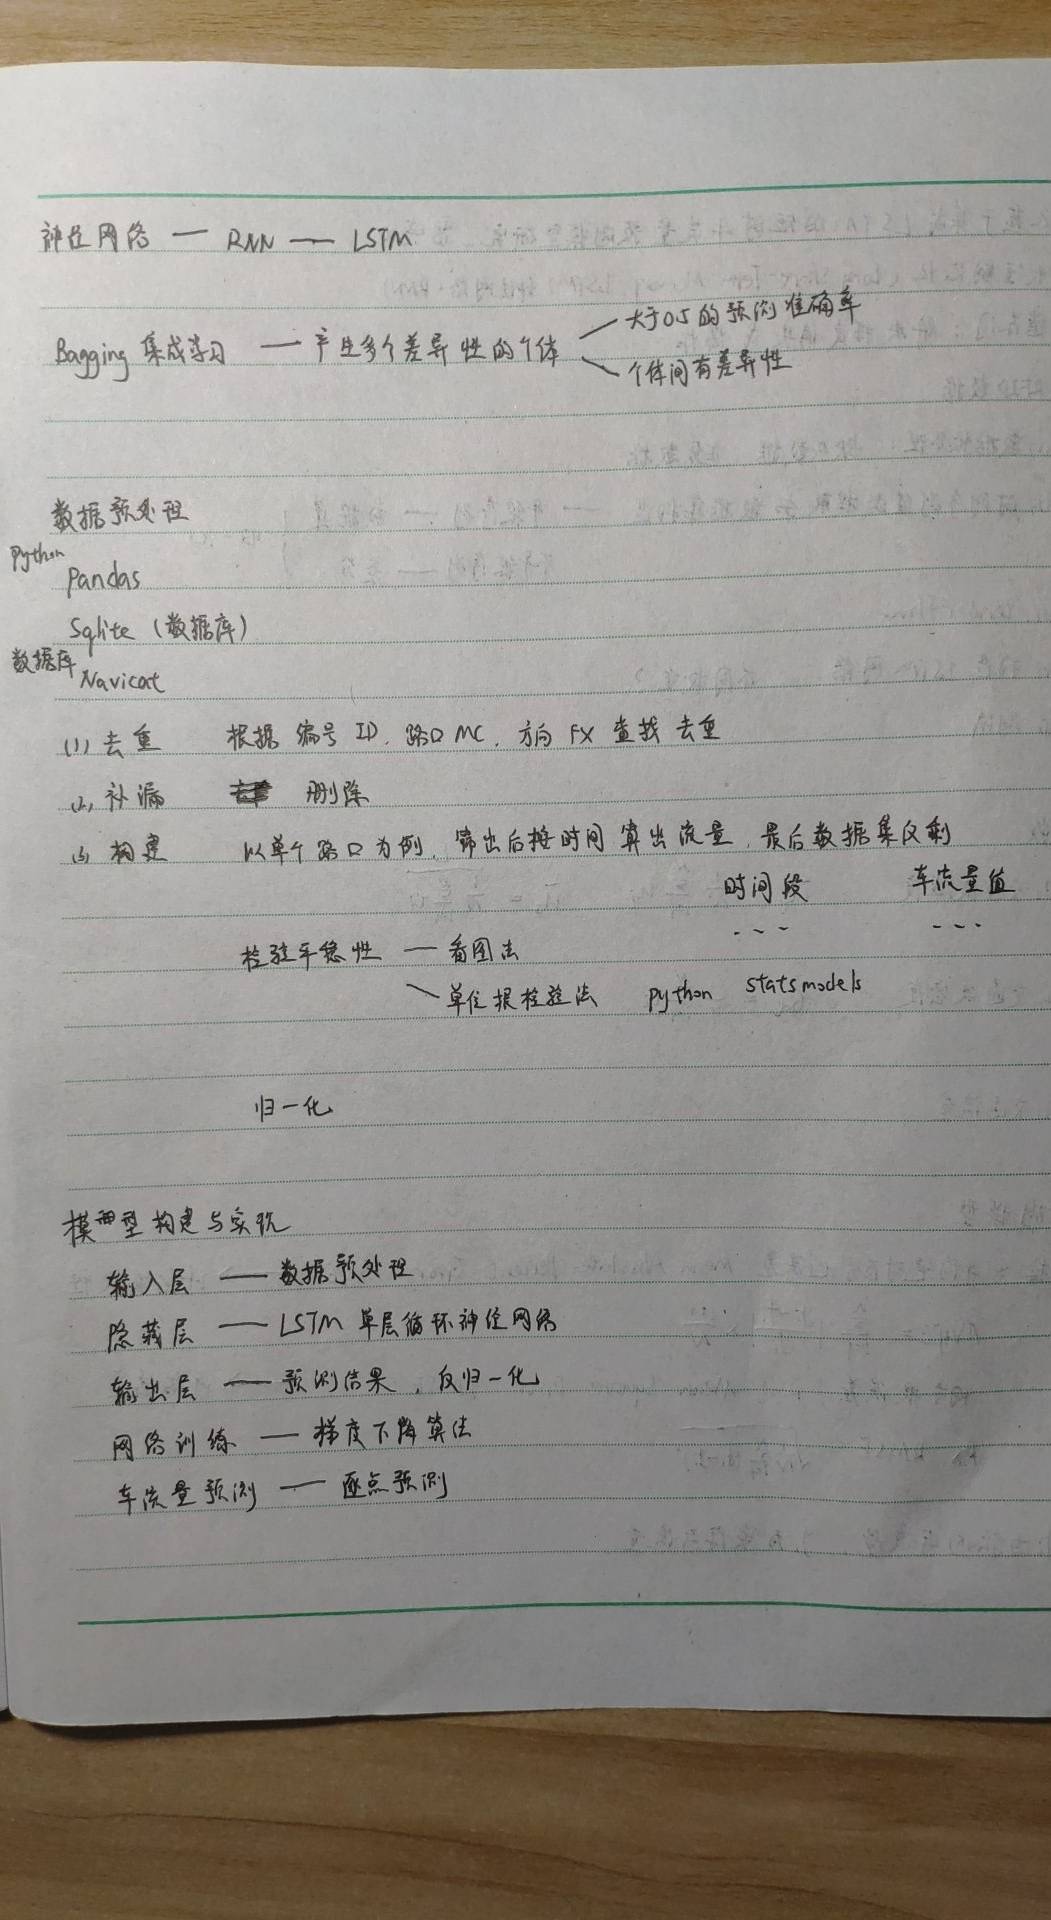 神经网络 — RNN — LSTM
大于0.5的预测准确率
Bagging 集成学习 — 产生多个差异性的个体
个体间有差异性
数据预处理
Python
Pandas
Sqlite (数据库)
数据库
Navicat
(1) 去重 根据 编号 ID, 路口 MC, 方向 FX 查找 去重
(2) 补漏 删除
(3) 构建 以单个路口为例, 筛出后按时间算出流量, 最后数据集仅剩
时间段 车流量值
--- ---
检验平稳性 — 看图法
单位根检验法 python statsmodels
归一化
模型构建与实现
输入层 — 数据预处理
隐藏层 — LSTM 单层循环神经网络
输出层 — 预测结果, 反归一化
网络训练 — 梯度下降算法
车流量预测 — 逐点预测